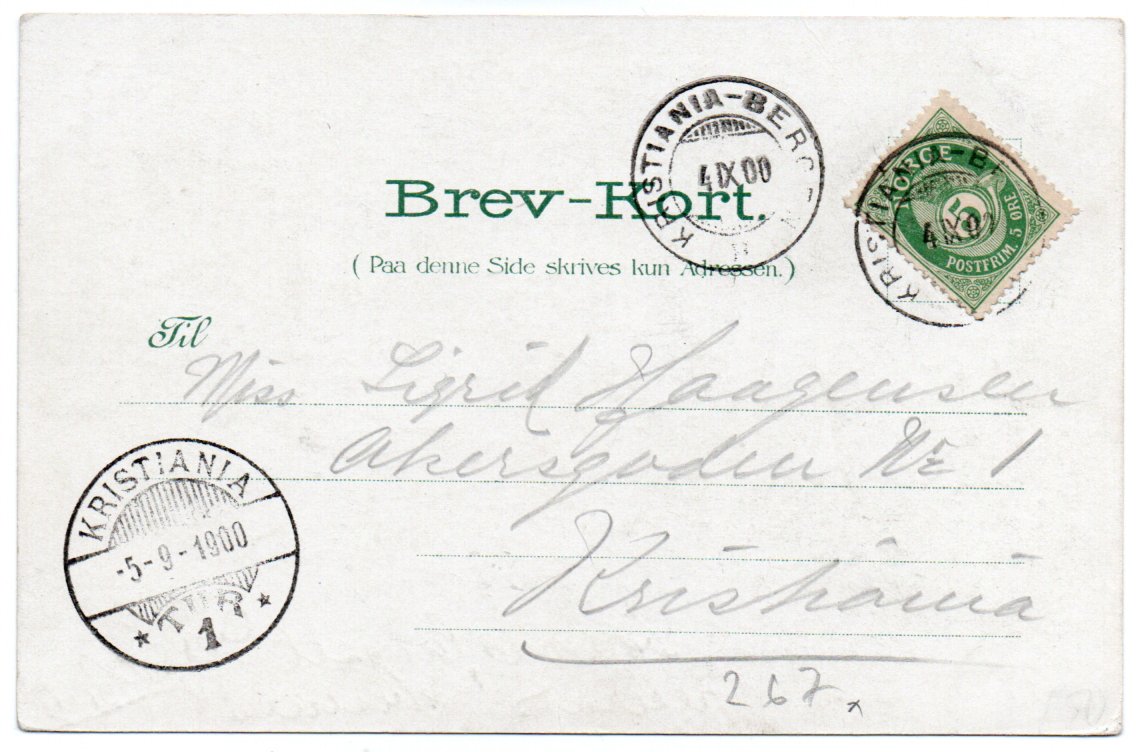 KRISTIANIA-BERG
4 IX 00
NORGE
5
POSTFRIM. 5 ØRE
KRISTIANIA-B
4 IX 00
Brev-Kort.
(Paa denne Side skrives kun Adressen.)
Til
Miss Sigrid Haagensen
Akersgaden No 1
Kristiania
KRISTIANIA
-5-9-1900
TUR
1
267